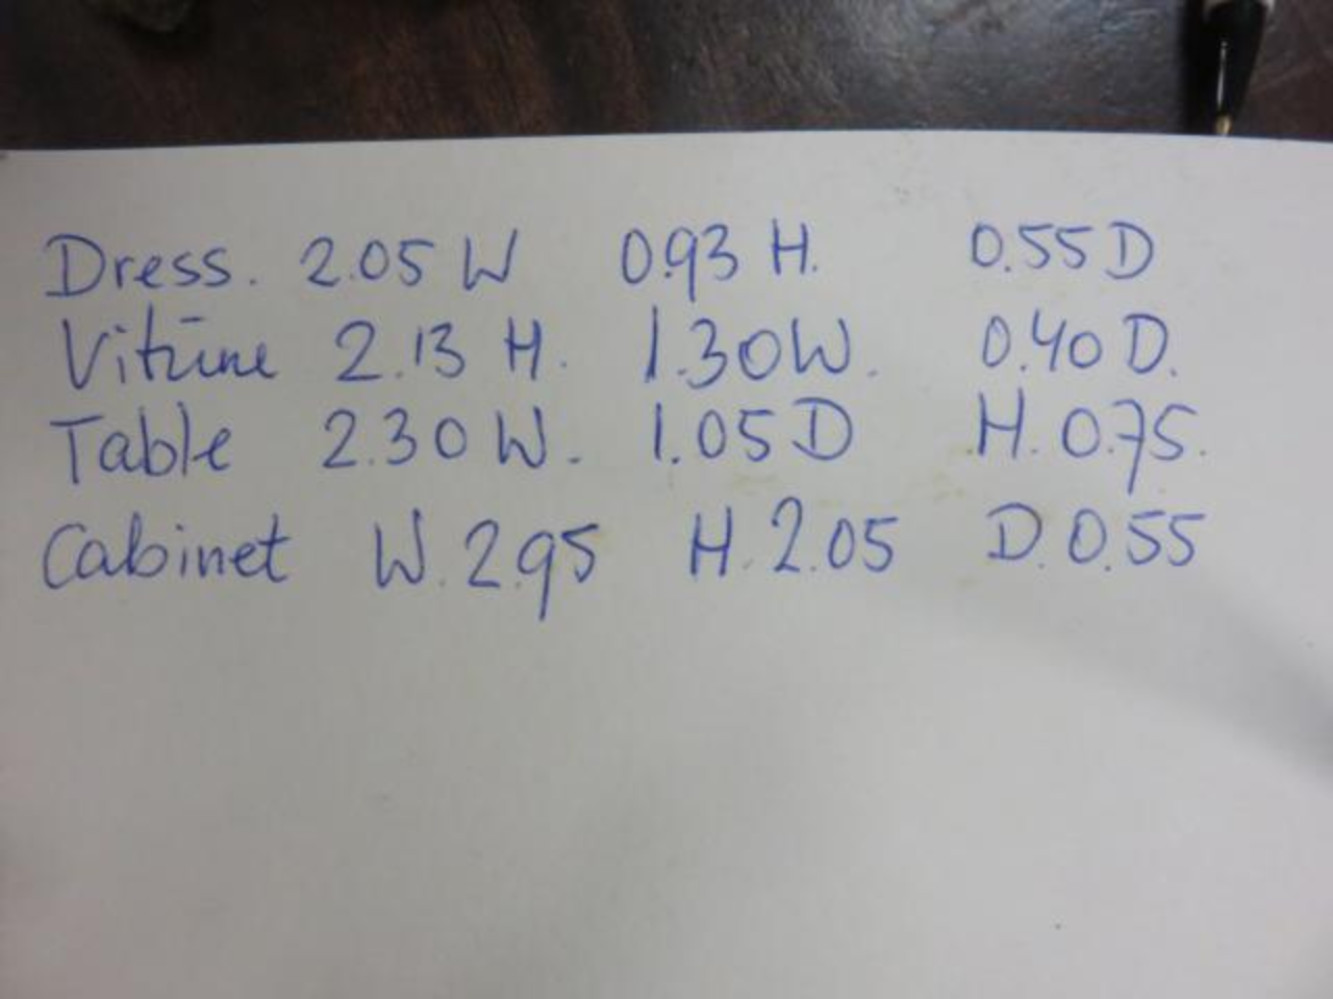 Dress. 2.05 W 0.93 H. 0.55 D
Vitrine 2.13 H. 1.30 W. 0.40 D.
Table 2.30 W. 1.05 D H. 0.75.
Cabinet W. 2.95 H. 2.05 D. 0.55